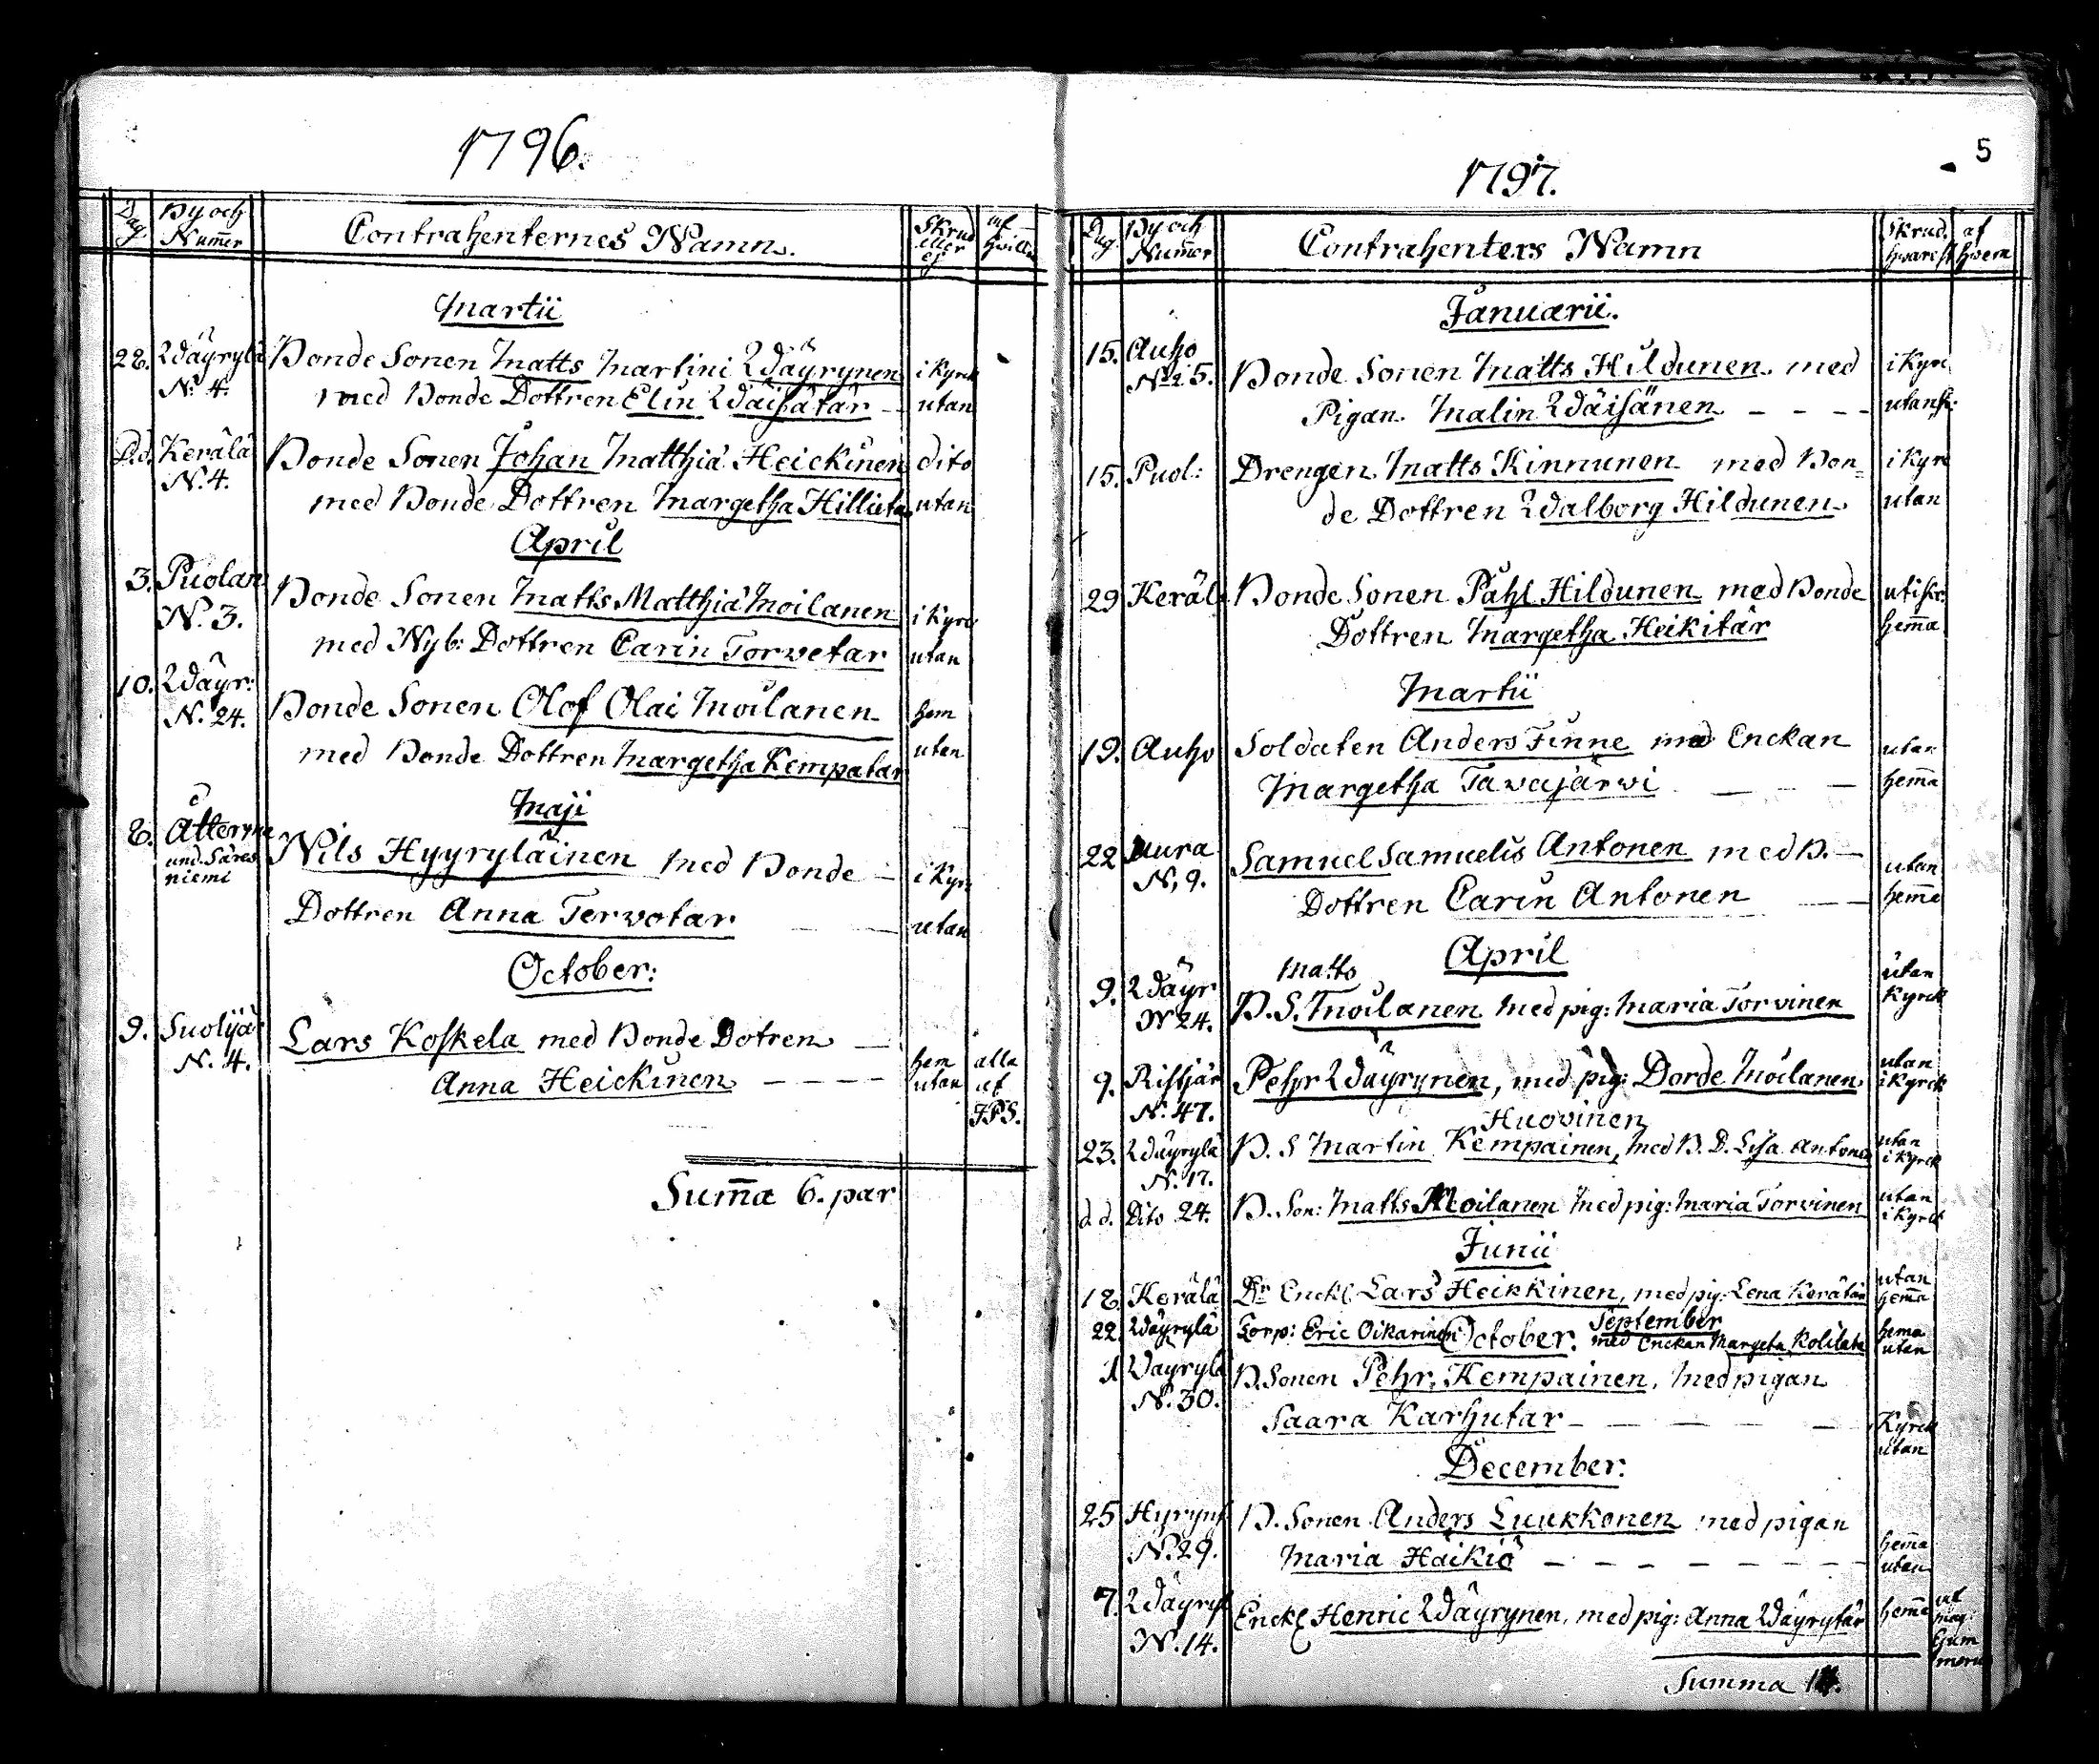 1796.
Dag. By och Nummer Contrahenternes Namn. Skrud eller ej af hvillken
Martii
28. Wäyrylä Bonde Sonen Matts Martini Wäyrynen i Kyrck
N:4. med Bonde Dottren Elin Wäisätär utan
D.d. Kerälä Bonde Sonen Johan Matthiæ Heickinen dito
N.4. med Bonde Dottren Margetha Hillieta utan
April
3. Puolan Bonde Sonen Matts Matthiæ Moilanen i Kyrc
N.3. med Nyb: Dottren Carin Torvetar utan
10. Wäyr: Bonde Sonen Olof Olai Moilanen hem
N.24. med Bonde Dottren Margetha Kempatar utan
Maji
8. und. Säres Nils Hyyryläinen med Bonde i Kyrc
niemi Dottren Anna Tervotar utan
October:
9. Suolijä Lars Koskela med Bonde Dotren hem alla
N.4. Anna Heickinen utan af
JPS.
Sum̄a 6. par
5
1797.
Dag. By och Nummer Contrahenters Namn Skrud. hvarest af hvem
Januarii.
15. Auho Bonde Sonen Matts Hildunen med i Kyrc
N:25. Pigan Malin Wäisänen utansk:
15. Puol: Drengen Matts Kinnunen med Bon= i Kyrc
de Dottren Walborg Hildunen utan
29 Keräl Bonde Sonen Påhl Hildunen med Bonde
Dottren Margetha Heikitär hem̄a
Martii
19. Auho Soldaten Anders Finne med Enckan utan
Margetha Tavajärwi hem̄a
22 Aura Samuel Samuelis Antonen med B. utan
N,9. Dottren Carin Antonen hem̄a
April
Matts utan
9. Wäyr B.S. Moilanen med pig: Maria Torvinen Kyrck
N 24.
9. Ristjär Pehr Wäyrynen, med pig: Dorde Moilanen utan i Kyrck
N:47. Huovinen
23. Wäyrylä B.S Martin Kempainen, med B.D. Lisa Antonen utan i Kyrck
N.17.
d.d. Dito 24. B. Son: Matts Moilanen med pig: Maria Torvinen utan i Kyrck
Junii
18. Kerälä Dr Enckl Lars Heikkinen, med pig: Lena Kerätär utan hem̄a
September
22 Wäyrylä Torp: Eric Oikarinen October. med Enckan Margeta Kolilata hema utan
1 Wäyrylä B.Sonen Pehr Kempainen, med pigan
N.30. Saara Karhutar Kyrck
utan
December:
25 Hyryns B. Sonen Anders Luukkonen med pigan
N:29. Maria Häikiö hem̄a
utan
7. Wäyryl Enckl Henric Wäyrynen, med pig: Anna Wäyrytär hem̄a af mag: Ejum
N.14. merus
Summa